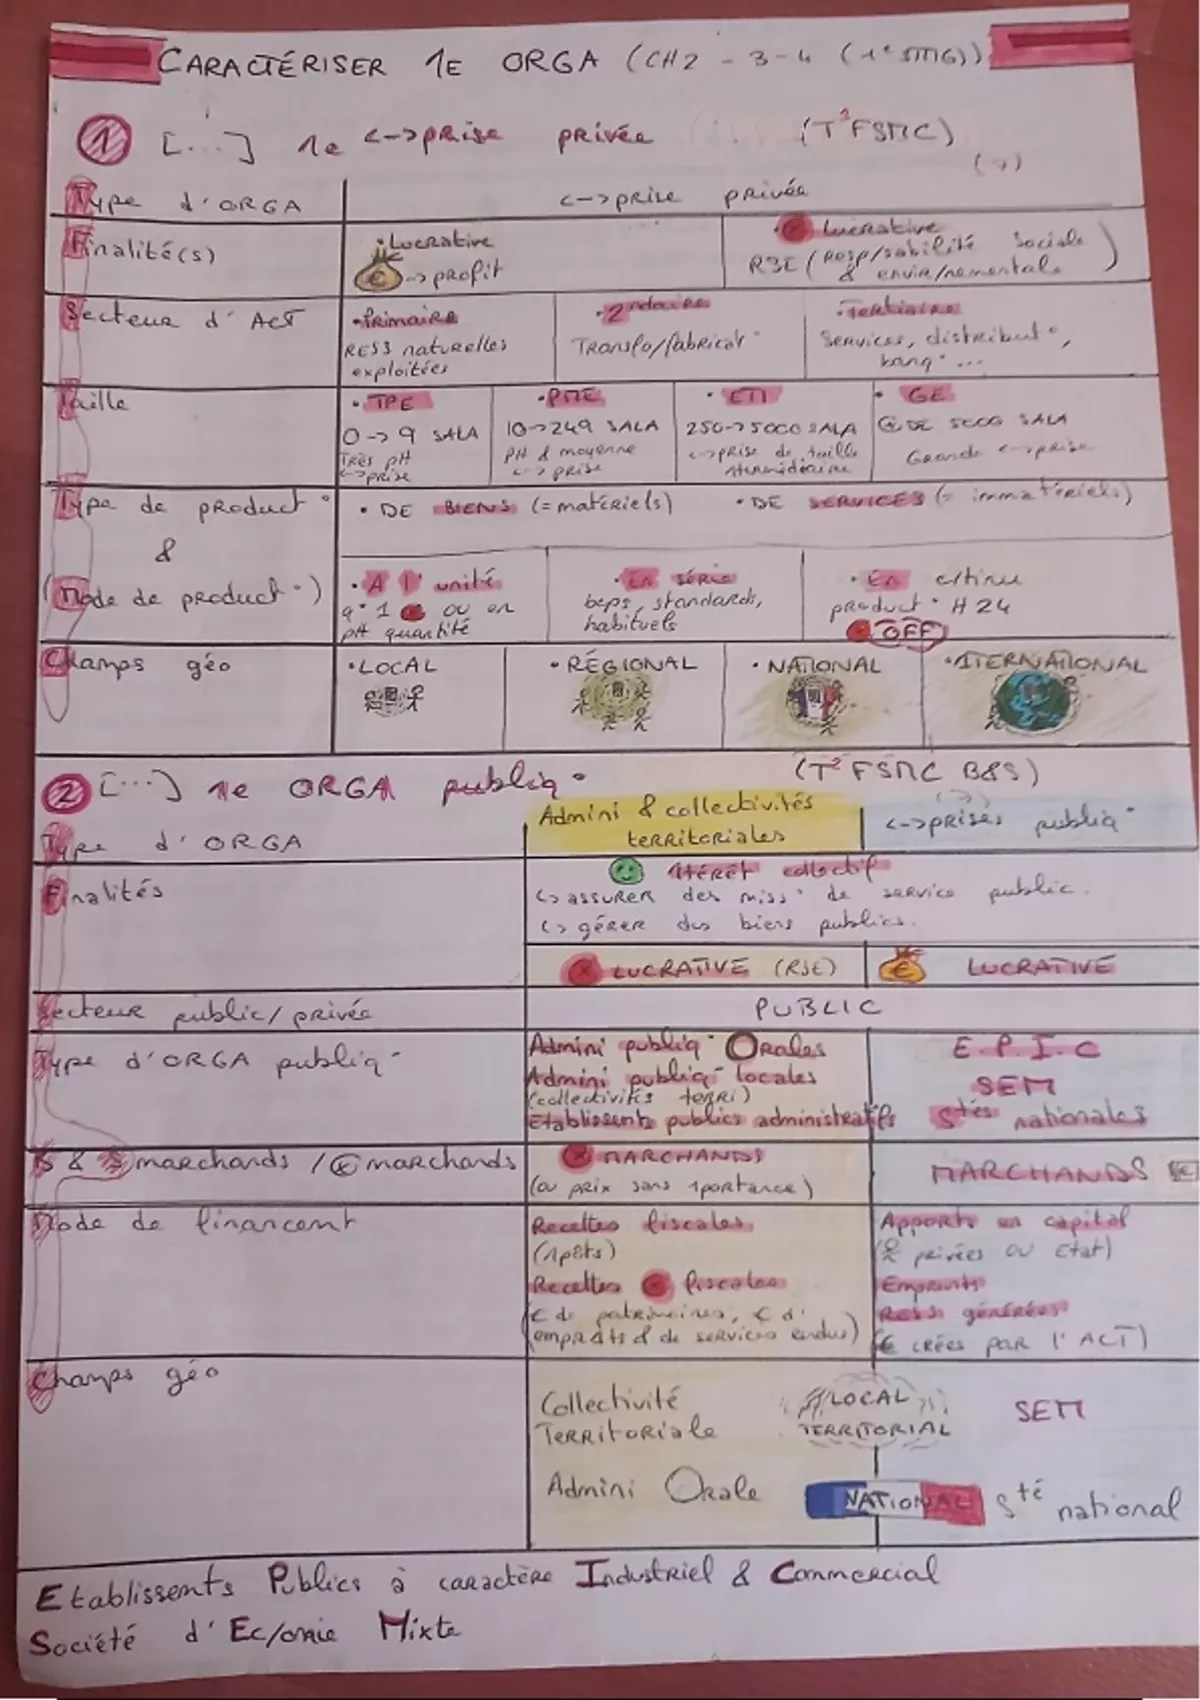 CARACTÉRISER 1E ORGA (CH2 - 3-4 (1e STMG))
1 [...] 1e <->prise privée (T²FSMC)
(->)
Type d'ORGA
<->prise privée
Finalité(s)
• Lucrative
€ -> profit
• X lucrative
RSE (resp/sabilité sociale
& envir/nementale)
Secteur d'ACT
• Primaire
RESS naturelles
exploitées
• 2ndaire
Transfo/fabricat°
• Tertiaire
Services, distribut°,
banq°...
Taille
• TPE
0 -> 9 SALA
Très pH
<->prise
• PME
10->249 SALA
PH & moyenne
<->prise
• ETI
250->5000 SALA
<->prise de taille
1termédiaire
• GE
⊕ DE 5000 SALA
Grande <->prise
Type de product°
&
(Mode de product°)
• DE BIENS (= matériels)
• DE SERVICES (= immatériels)
• A l'unité
q° 1 ou en
pH quantité
• En série
bcps, standards,
habituels
• En c/tinu
product° H24
X OFF
Champs géo
• LOCAL
• RÉGIONAL
• NATIONAL
• 1TERNATIONAL
2 [...] 1e ORGA publiq°
(T²FSMC B&S)
(->)
Type d'ORGA
Admini & collectivités
territoriales
<->prises publiq°
Finalités
1térêt collectif
↪ assurer des miss° de service public.
↪ gérer des biens publics.
X LUCRATIVE (RSE)
€ LUCRATIVE
Secteur public/privée
PUBLIC
Type d'ORGA publiq°
Admini publiq° Orales
Admini publiq° locales
(collectivités terri)
Etablissents publics administratifs
E.P.I.C
SEM
Stés nationales
B & S marchands / X marchands
X MARCHANDS
(ou prix sans 1portance)
MARCHANDS €
Mode de financemt
Recettes fiscales
(1pôts)
Recettes X fiscales
(€ de patrimoines, € d'
emprûts & de services endus)
Apports en capital
(privées ou Etat)
Emprunts
Ress générées
(€ crées par l'ACT)
Champs géo
Collectivité
Territoriale
LOCAL
TERRITORIAL
SEM
Admini Orale
NATIONAL
Sté national
Etablissents Publics à caractère Industriel & Commercial
Société d'Ec/omie Mixte